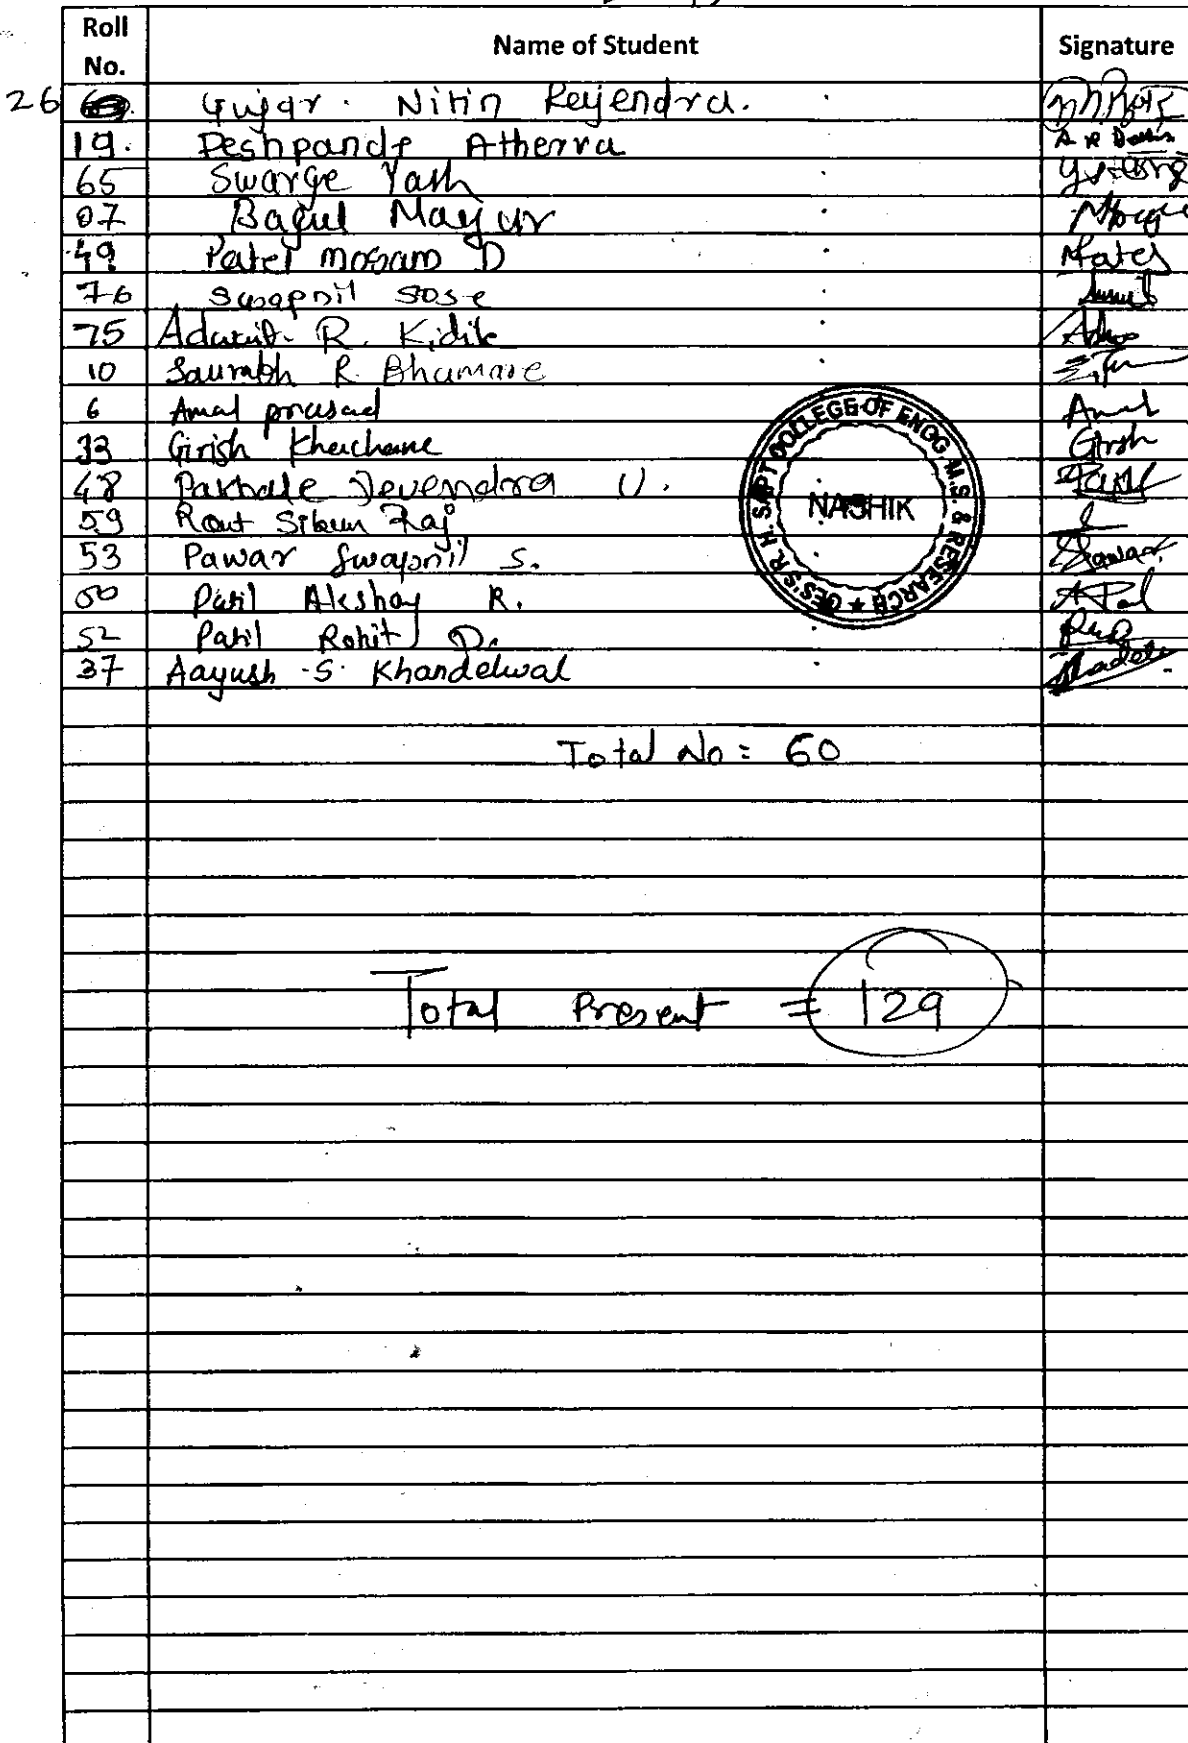 Roll No. Name of Student Signature
26 Gujar. Nitin Rejendra.
19. Deshpande Atherva
65 Swarge Yash
07 Bagul Mayur
49 Patel mosam D Patel
76 swapnil sose
75 R. Kidile
10 Saurabh R. Bhamare
6 Amal prasad Amal
33 Girish Khaichane Girsh
48 Pakhale Devendra U.
59 Rout Sibun Raj
53 Pawar Swapnil S. Pawar
50 Patil Akshay R.
52 Patil Rohit D.
37 Aayush S. Khandelwal
GES'S R. H. SAPT COLLEGE OF ENGG. M.S. & RESEARCH ★
NASHIK
Total No = 60
Total Present = 129